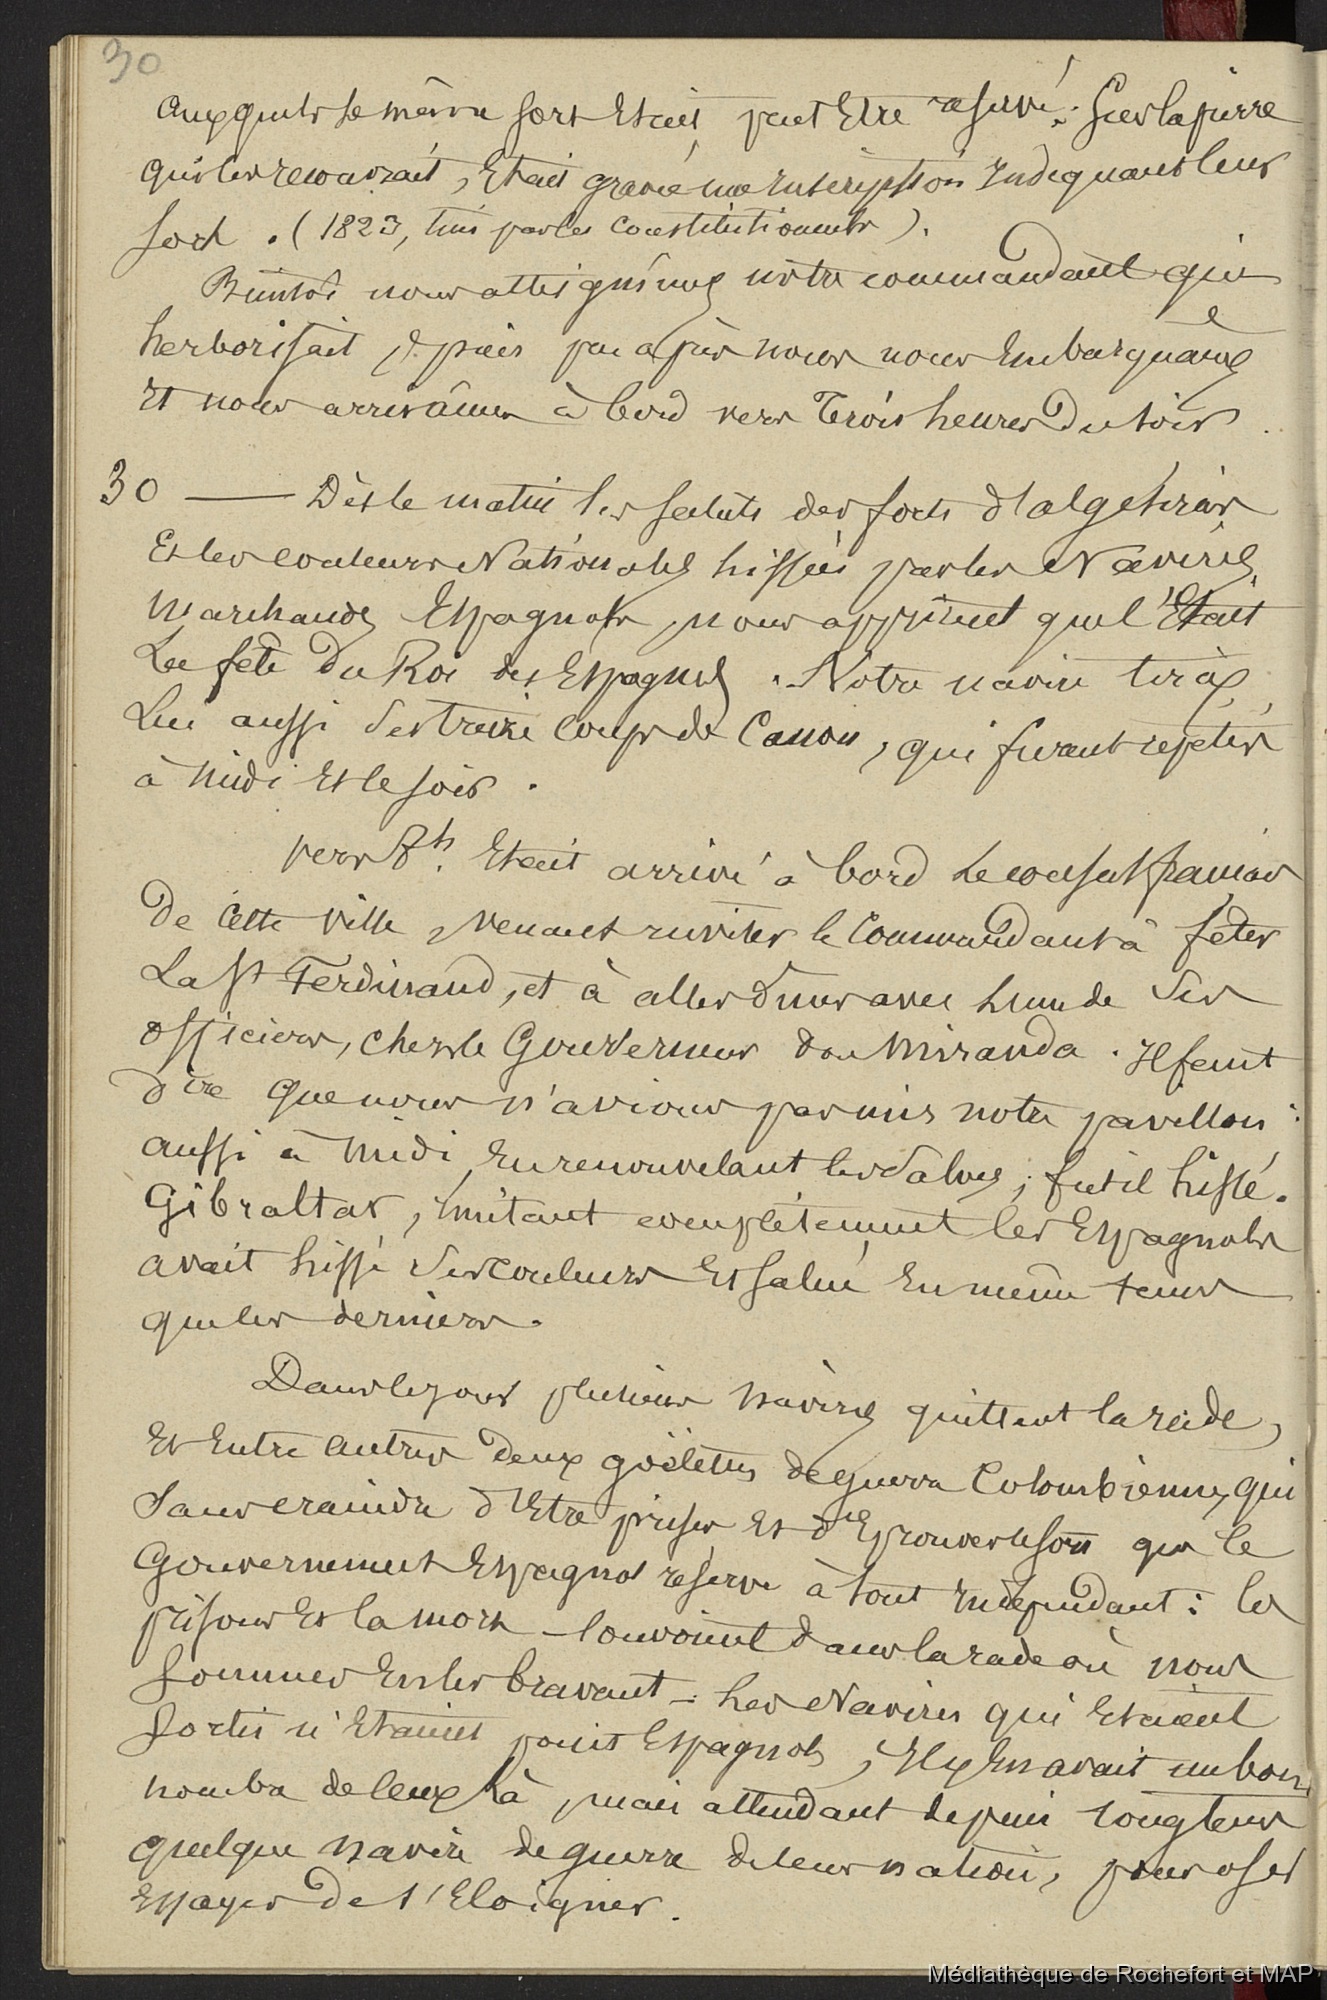 30
auxquels le même sort était peut être réservé. Sur la pierre
qui les recouvrait, était gravée une inscription indiquant leur
sort. (1823, tués par les constitutionnels).
Bientôt nous atteignîmes notre commandant qui
herborisait, & puis peu après nous nous embarquâmes
et nous arrivâmes à bord vers Trois heures du soir.
30 — Dès le matin les saluts des forts d'algésiras
Et les couleurs Nationales hissées par les Navires
Marchands Espagnols, nous apprirent que c'Etait
La fête Du Roi des Espagnes. Notre navire tira
Lui aussi Ses treize coups de Canon, qui furent répétés
à midi Et le soir.
vers 8h. Etait arrivé à bord Le consul français
De cette ville, venant inviter le Commandant à fêter
La St Ferdinand, et à aller diner avec l'un de Ses
officiers, chez le Gouverneur don Miranda. Il faut
dire que nous n'avions pas mis notre pavillon :
aussi à midi En renouvelant les Salves, fut il hissé.
Gibraltar, imitant complétement les Espagnols
avait hissé Ses couleurs Et salué En même tems
que les derniers.
Dans le jour plusieurs Navires quittent la rade,
Et Entre autres Deux goëlettes de guerre Colombiennes, qui
Sans craindre d'Etre prises Et d'Eprouver le sort que le
Gouvernement Espagnol réserve à tout indépendant : les
prisons Et la mort — louvoient dans la rade où nous
sommes En les bravant — Les Navires qui Etaient
sortis n'Etaient point Espagnols, Il y En avait un bon
nombre de ceux là, mais attendant depuis longtems
quelque navire de guerre de leur nation, pour oser
Essayer De s'Eloigner.
Médiathèque de Rochefort et MAP